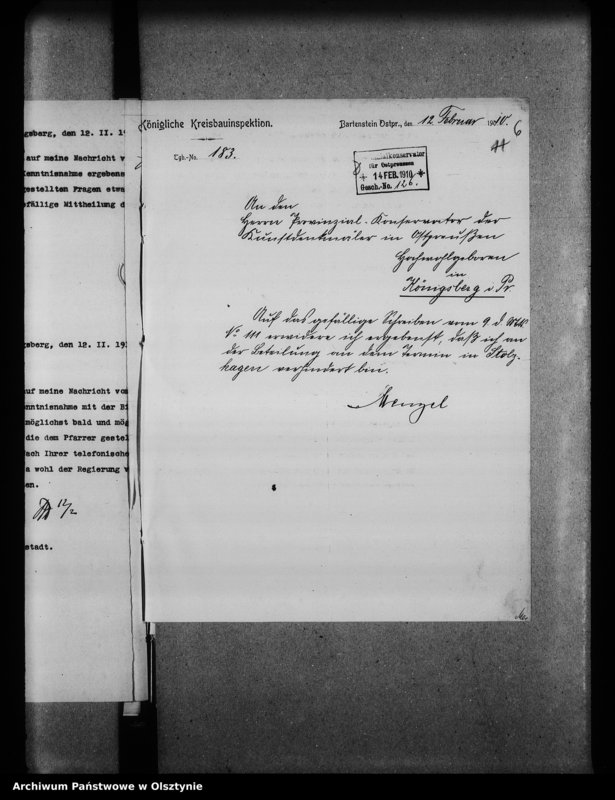 gsberg, den 12. II. 19
auf meine Nachricht v
Kenntnisnahme ergebene
gestellten Fragen etwa
efällige Mittheilung d
gsberg, den 12. II. 191
auf meine Nachricht vom
enntnisnahme mit der Bi
möglichst bald und mög
die dem Pfarrer gestel
ach Ihrer telefonische
a wohl der Regierung v
en.
12/2
stadt.
Königliche Kreisbauinspektion.
Bartenstein Ostpr., den 12. Februar 1910.
6
Tgb.-No. 183.
Provinzialkonservator
für Ostpreussen
14 FEB. 1910
Gesch.-No. 126.
An den
Herrn Provinzial-Konservator der
Kunstdenkmäler in Ostpreußen
Hochwohlgeboren
in
Königsberg i Pr
Auf das gefällige Schreiben vom 9. d. Mts
No 111 erwidere ich ergebenst, daß ich an
der Beteilung an dem Termin in Stolz-
hagen verhindert bin.
Menzel
Archiwum Państwowe w Olsztynie